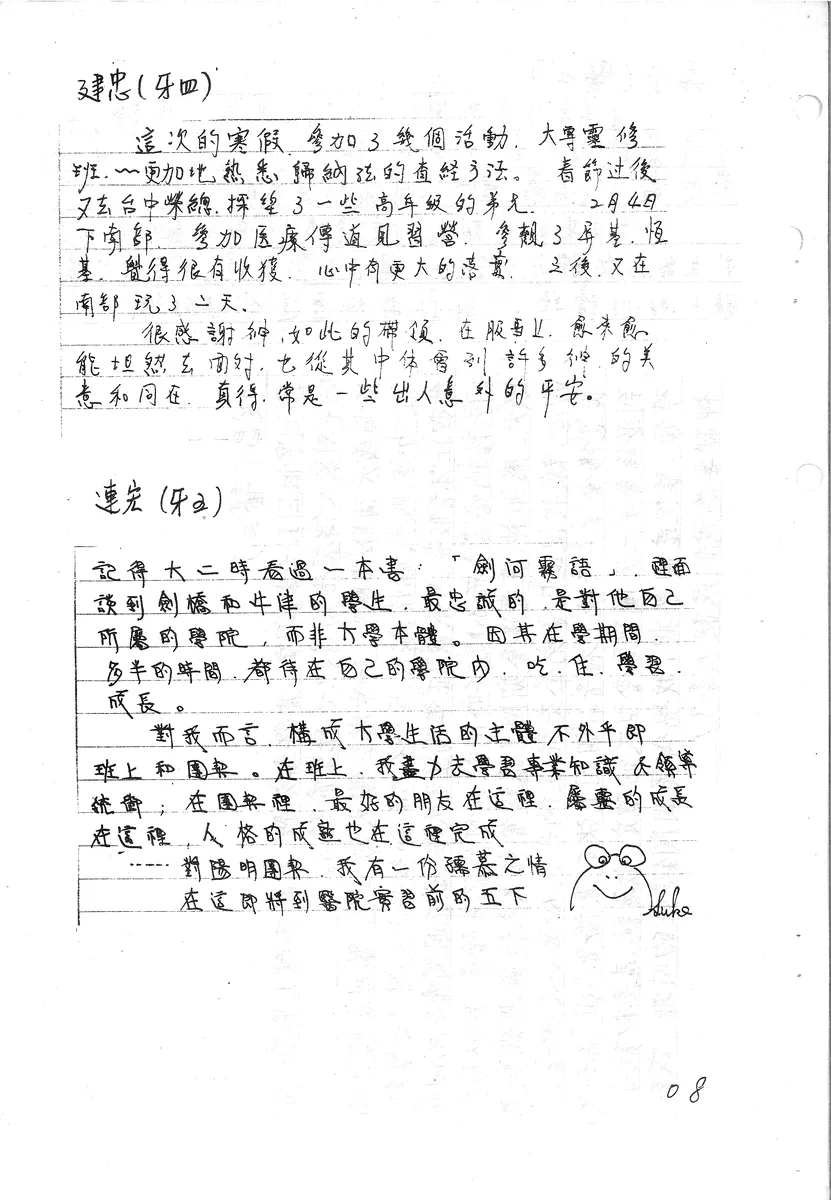 建忠(牙四)
這次的寒假、參加了幾個活動、大專靈修
班、~~更加地熟悉歸納法的查經方法。 春節过後
又去台中榮總、探望了一些高年級的弟兄、 2月4日
下南部、參加医療傳道見習營、參觀了屏基、恆
基、覺得很有收獲、心中有更大的 之後、又在
南部玩了二天、
很感謝神、如此的帶領、在服事上、愈來愈
能坦然去面對、也從其中体會到許多神、的美
意和同在、真得、常是一些出人意外的平安。
連宏(牙五)
記得大二時看過一本書:「劍河霧語」、裡面
談到劍橋和牛津的學生、最忠誠的、是對他自己
所屬的學院,而非大學本體。因其在學期間、
多半的時間、都待在自己的學院內、吃、住、學習、
成長。
對我而言、構成大學生活的主體不外乎即
班上和團契。在班上、我盡力去學習專業知識及領導
統御;在團契裡、最好的朋友在這裡、屬靈的成長
在這裡,人格的成熟也在這裡完成
……對陽明團契、我有一份孺慕之情
在這即將到醫院實習前的五下
Luke
08